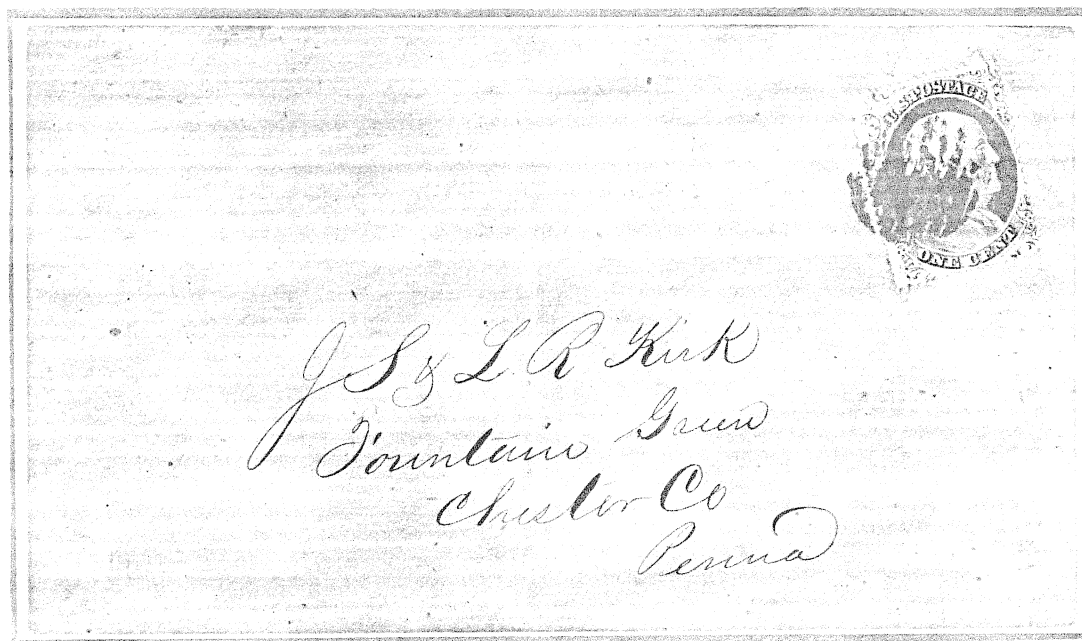 U.S. POSTAGE
ONE CENT
J S & L. R Kirk
Fountain Green
Chester Co
Penna